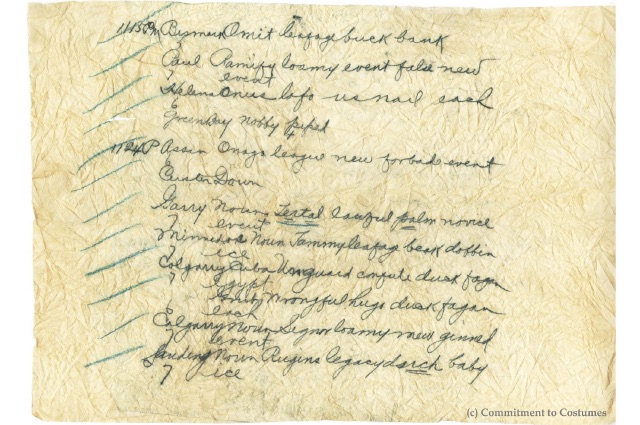 1115PM Bismark Omit leafage buck bank
Paul Ramify loamy event false new
7 event
Helena Onus lofo us nail each
7
Greenbay nobby piped
1124P Assin Onago league new forbade event
Down
Garry Noun Tertal lawful palm novice
7 event
Noun Tammy leafage beak dobbin
7 ice
Cuba Unguard confute duck fagan
7 egypt
Wrongful hugo duck fagan
each
Calgarry Noun Signor loamy mew ginned
event
Noun Rugins legacy duck baby
7 ice
(c) Commitment to Costumes